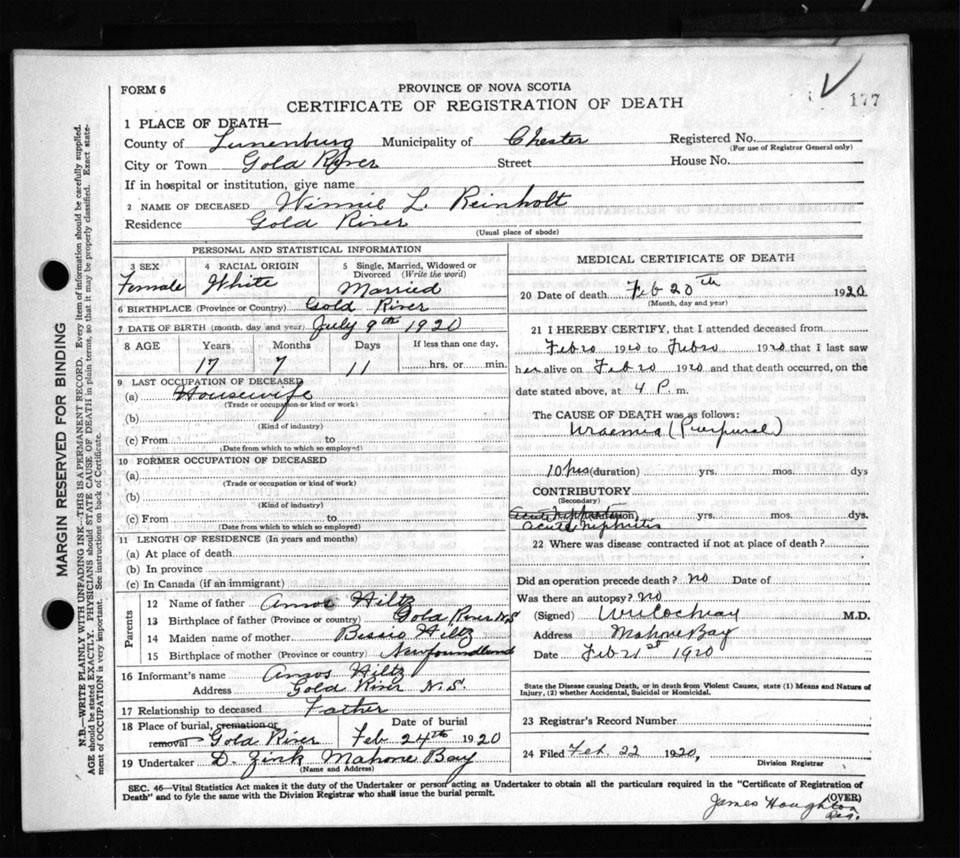 FORM 6
PROVINCE OF NOVA SCOTIA
177
CERTIFICATE OF REGISTRATION OF DEATH
1 PLACE OF DEATH—
County of Lunenburg Municipality of Chester Registered No.
(For use of Registrar General only)
City or Town Gold River Street House No.
If in hospital or institution, give name
2 NAME OF DECEASED Winnie L. Reinholt
Residence Gold River
(Usual place of abode)
PERSONAL AND STATISTICAL INFORMATION
3 SEX 4 RACIAL ORIGIN 5 Single, Married, Widowed or
Divorced (Write the word)
Female White Married
6 BIRTHPLACE (Province or Country) Gold River
7 DATE OF BIRTH (month, day and year) July 9th 1920
8 AGE Years Months Days If less than one day,
17 7 11 hrs. or min.
9 LAST OCCUPATION OF DECEASED
(a) Housewife
(Trade or occupation or kind or work)
(b)
(Kind of industry)
(c) From to
(Date from which to which so employed)
10 FORMER OCCUPATION OF DECEASED
(a)
(Trade or occupation or kind of work)
(b)
(Kind of industry)
(c) From to
(Date from which to which so employed)
11 LENGTH OF RESIDENCE (In years and months)
(a) At place of death
(b) In province
(c) In Canada (if an immigrant)
Parents
12 Name of father Amos Hiltz
13 Birthplace of father (Province or country) Gold River N.S
14 Maiden name of mother Bessie Hiltz
15 Birthplace of mother (Province or country) Newfoundland
16 Informant's name Amos Hiltz
Address Gold River N.S.
17 Relationship to deceased Father
18 Place of burial, cremation or Date of burial
removal Gold River Feb 24th 1920
19 Undertaker D. Zink Mahone Bay
(Name and Address)
MEDICAL CERTIFICATE OF DEATH
20 Date of death Feb 20th 1920
(Month, day and year)
21 I HEREBY CERTIFY, that I attended deceased from
Feb 20 1920 to Feb 20 1920 that I last saw
her alive on Feb 20 1920 and that death occurred, on the
date stated above, at 4 P. m.
The CAUSE OF DEATH was as follows:
Uraemia (Puerpural)
10 hrs (duration) yrs. mos. dys
CONTRIBUTORY
(Secondary)
acute nephritis (duration) yrs. mos. dys.
acute nephritis
22 Where was disease contracted if not at place of death?
Did an operation precede death? no Date of
Was there an autopsy? no
(Signed) M.D.
Address Mahone Bay
Date Feb 21st 1920
State the Disease causing Death, or in death from Violent Causes, state (1) Means and Nature of
Injury, (2) whether Accidental, Suicidal or Homicidal.
23 Registrar's Record Number
24 Filed Feb. 22 1920,
Division Registrar
SEC. 46—Vital Statistics Act makes it the duty of the Undertaker or person acting as Undertaker to obtain all the particulars required in the "Certificate of Registration of
Death" and to fyle the same with the Division Registrar who shall issue the burial permit.
(OVER)
James Houghton
Reg.
MARGIN RESERVED FOR BINDING
N.B.—WRITE PLAINLY WITH UNFADING INK—THIS IS A PERMANENT RECORD. Every item of information should be carefully supplied.
AGE should be stated EXACTLY. PHYSICIANS should STATE CAUSE OF DEATH in plain terms, so that it may be properly classified. Exact state-
ment of OCCUPATION is very important. See instructions on back of Certificate.